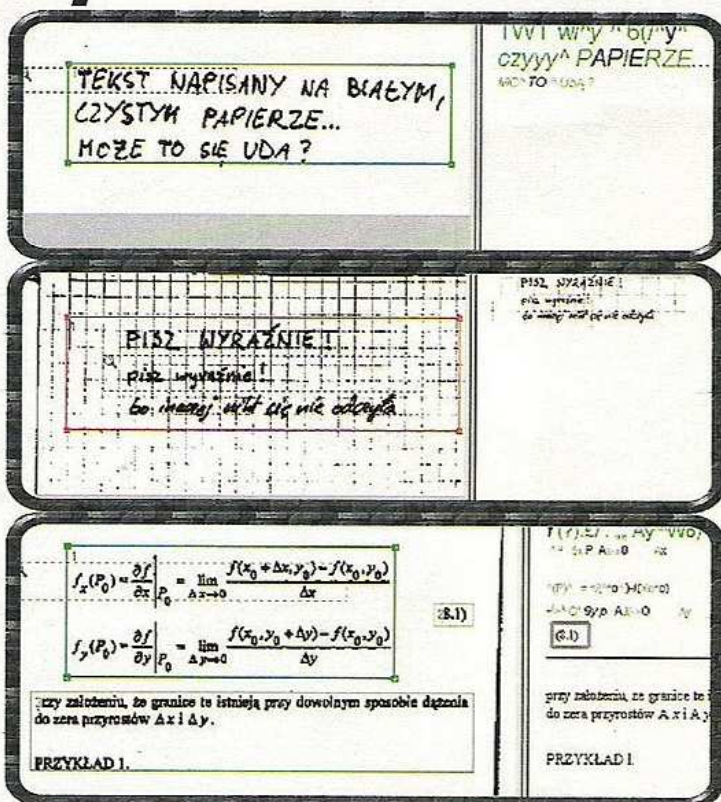 TEKST NAPISANY NA BIAŁYM,
CZYSTYM PAPIERZE...
MOŻE TO SIĘ UDA?
czyyy^ PAPIERZE...
TO
PISZ WYRAŹNIE!
pisz wyraźnie!
bo inaczej nikt cię nie odczyta
PISZ WYRAŹNIE!
pisz wyraźnie!
bo inaczej nikt cię nie odczyta
f_x(P_0) = ∂f/∂x |P_0 = lim Δx→0 f(x_0 + Δx, y_0) − f(x_0, y_0) / Δx
(8.1)
f_y(P_0) = ∂f/∂y |P_0 = lim Δy→0 f(x_0, y_0 + Δy) − f(x_0, y_0) / Δy
przy założeniu, że granice te istnieją przy dowolnym sposobie dążenia
do zera przyrostów Δx i Δy.
PRZYKŁAD 1.
(8.1)
przy założeniu, że granice te i
do zera przyrostów Δ x i Δ y
PRZYKŁAD 1.